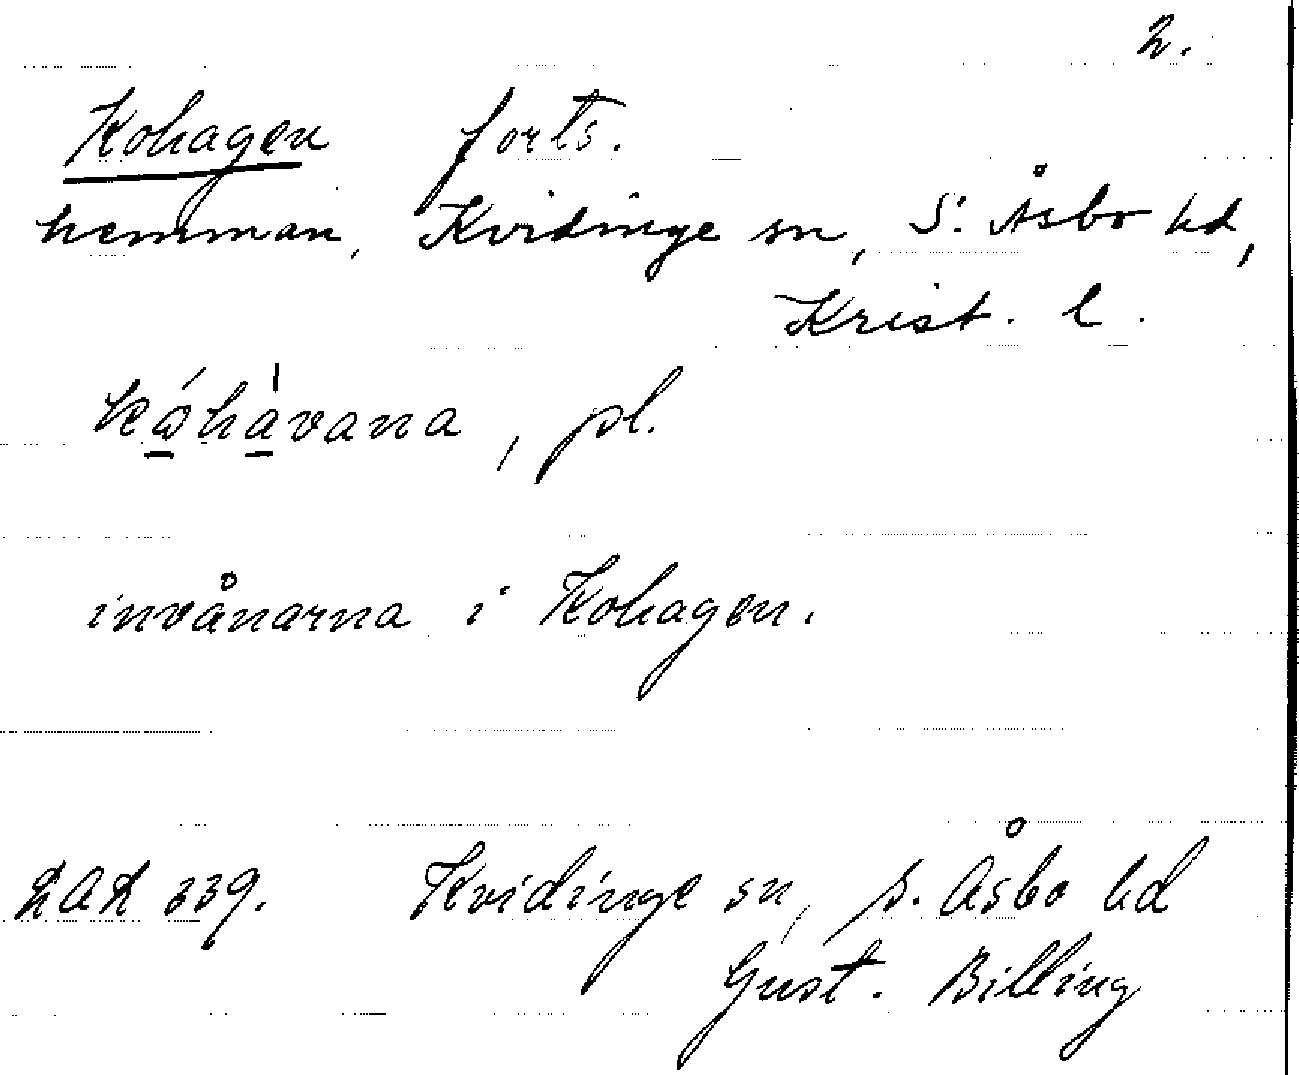 2.
Kohagen forts.
hemman, Kvidinge sn, S. Åsbo hd,
Krist. l.
kóhávana, pl.
invånarna i Kohagen.
LAL 339. Kvidinge sn, S. Åsbo hd
Gust. Billing